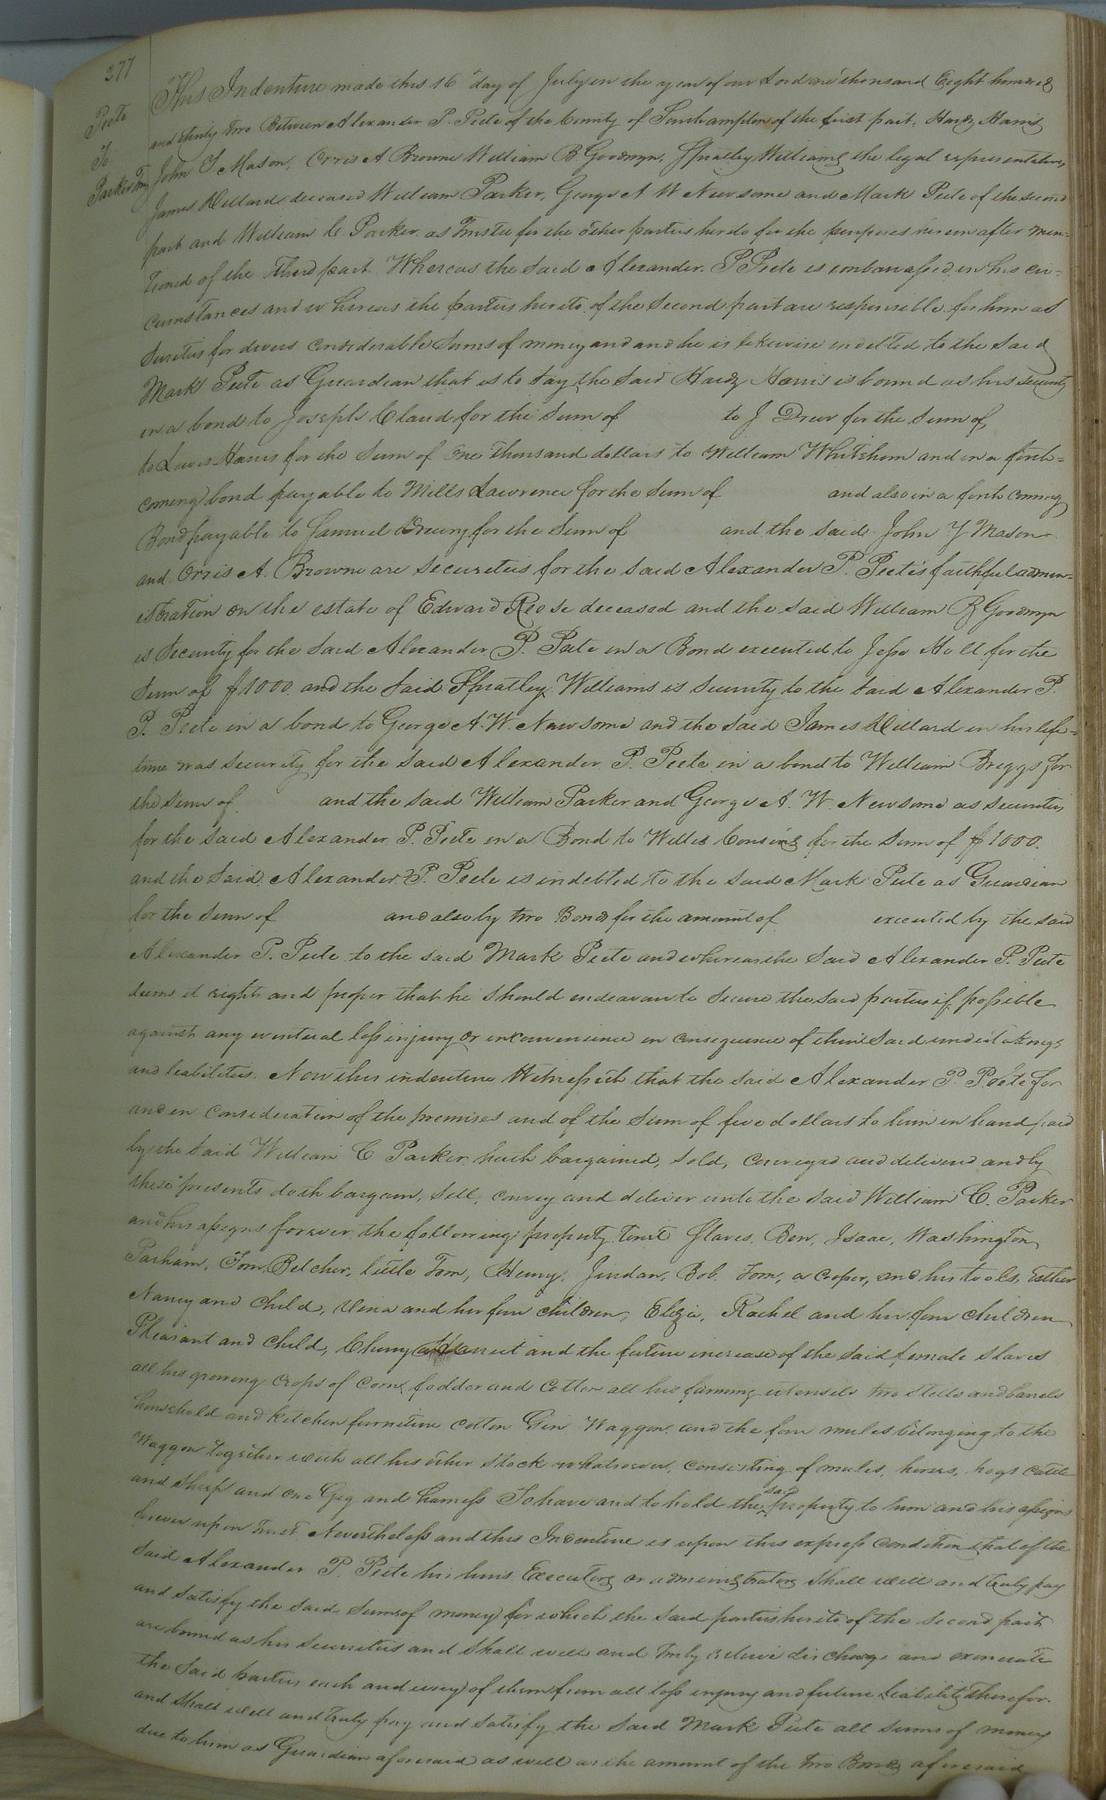 277
Peete
To
Parker Tru
This Indenture made this 16th day of July in the year of our Lord one thousand Eight hundred
and thirty two Between Alexander P. Peete of the County of Southampton of the first part, Hardy Harris
John Y Mason, Orris A Browne William B Goodwyn, Spratley Williams the legal representatives
James Dillard deceased William Parker, George A W Newsome and Mark Peete of the second
part and William C. Parker as Trustee for the other parties hereto for the purposes herein after men-
tioned of the third part Whereas the said Alexander P Peete is embarrassed in his cir-
cumstances and whereas the parties hereto of the second part are responsible for him as
Sureties for divers considerable Sums of money and and he is likewise indebted to the Said
Mark Peete as Guardian that is to say the said Hardy Harris is bound as his security
in a bond to Joseph Claud for the Sum of to J Drew for the Sum of
to Lewis Harris for the Sum of One thousand dollars to William Whitehorn and in a forth=
coming bond payable to Mills Lawrence for the Sum of and also in a forth coming
Bond payable to Samuel Drury for the Sum of and the said John Y Mason
and Orris A. Browne are Securities for the said Alexander P. Peete's faithful admin-
istration on the estate of Edward Reese deceased and the said William B Goodwyn
is Security for the said Alexander P. Peete in a Bond executed to Jesse Holt for the
Sum of $1000 and the said Spratley Williams is Security to the said Alexander P.
P. Peete in a bond to George A. W. Newsome and the said James Dillard in his life=
time was security for the said Alexander P. Peete in a bond to William Briggs for
the sum of and the said William Parker and George A. W. Newsome as securities
for the said Alexander P. Peete in a Bond to Willis Cousins for the Sum of $1000.
and the said Alexander P. Peete is indebted to the said Mark Peete as Guardian
for the sum of and also by two Bonds for the amount of executed by the said
Alexander P. Peete to the said Mark Peete and whereas the said Alexander P. Peete
deems it right and proper that he should endeavour to secure the said parties if possible
against any eventual loss injury or inconvenience in consequence of their said undertakings
and liabilities. Now this indenture Witnesseth that the said Alexander P. Peete for
and in consideration of the premises and of the sum of five dollars to him in hand paid
by the said William C Parker hath bargained, sold, conveyed and delivered and by
these presents doth bargain, sell, convey and deliver unto the said William C. Parker
and his assigns forever the following property to wit Slaves, Ben, Isaac, Washington,
Parham, Tom Belcher, little Tom, Henry, Jordan, Bob, Tom, a Cooper, and his tools, Esther
Nancy and Child, Vina and her four children, Eliza, Rachel and her four children
Pleasant and child, Cherry and Harriet and the future increase of the said female slaves
all his growing crops of Corn, fodder and Cotton all his farming utensils two Stills and barrels
household and kitchen furniture Cotton Gin Waggon, and the four mules belonging to the
Waggon together with all his other Stock whatsoever, consisting of mules, horses, hogs cattle
and Sheep and one Gig and harness To have and to hold the said property to him and his assigns
forever upon trust Nevertheless and this Indenture is upon this express condition that if the
said Alexander P. Peete his heirs Executors or administrators shall well and truly pay
and satisfy the said sums of money for which the said parties hereto of the second part
are bound as his Securities and shall well and truly relieve discharge and exonerate
the said parties each and every of them from all loss injury and future liability therefor.
and shall well and truly pay and satisfy the said Mark Peete all sums of money
due to him as Guardian aforesaid as well as the amount of the two Bonds aforesaid